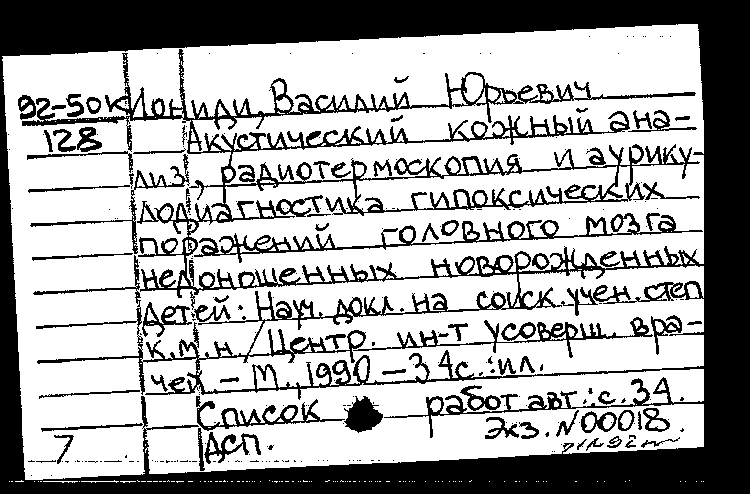 92-50К Иониди, Василий Юрьевич
128 Акустический кожный ана-
лиз, радиотермоскопия и аурику-
лодиагностика гипоксических
поражений головного мозга
недоношенных новорожденных
детей: Науч. докл. на соиск. учен. степ
к.м.н. / Центр. ин-т усоверш. вра-
чей - М., 1990 - 34с.:ил.
Список работ авт.: с. 34.
Экз. N00018.
7 ДСП.